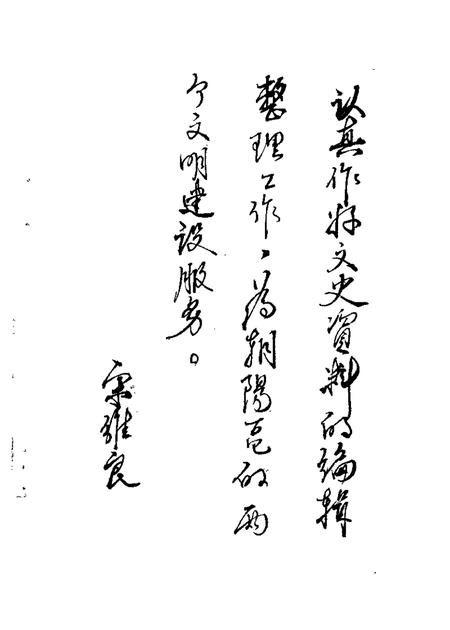 认真作好文史資料的编辑
整理工作，为朝陽区的两
个文明建设服务。
宋维良